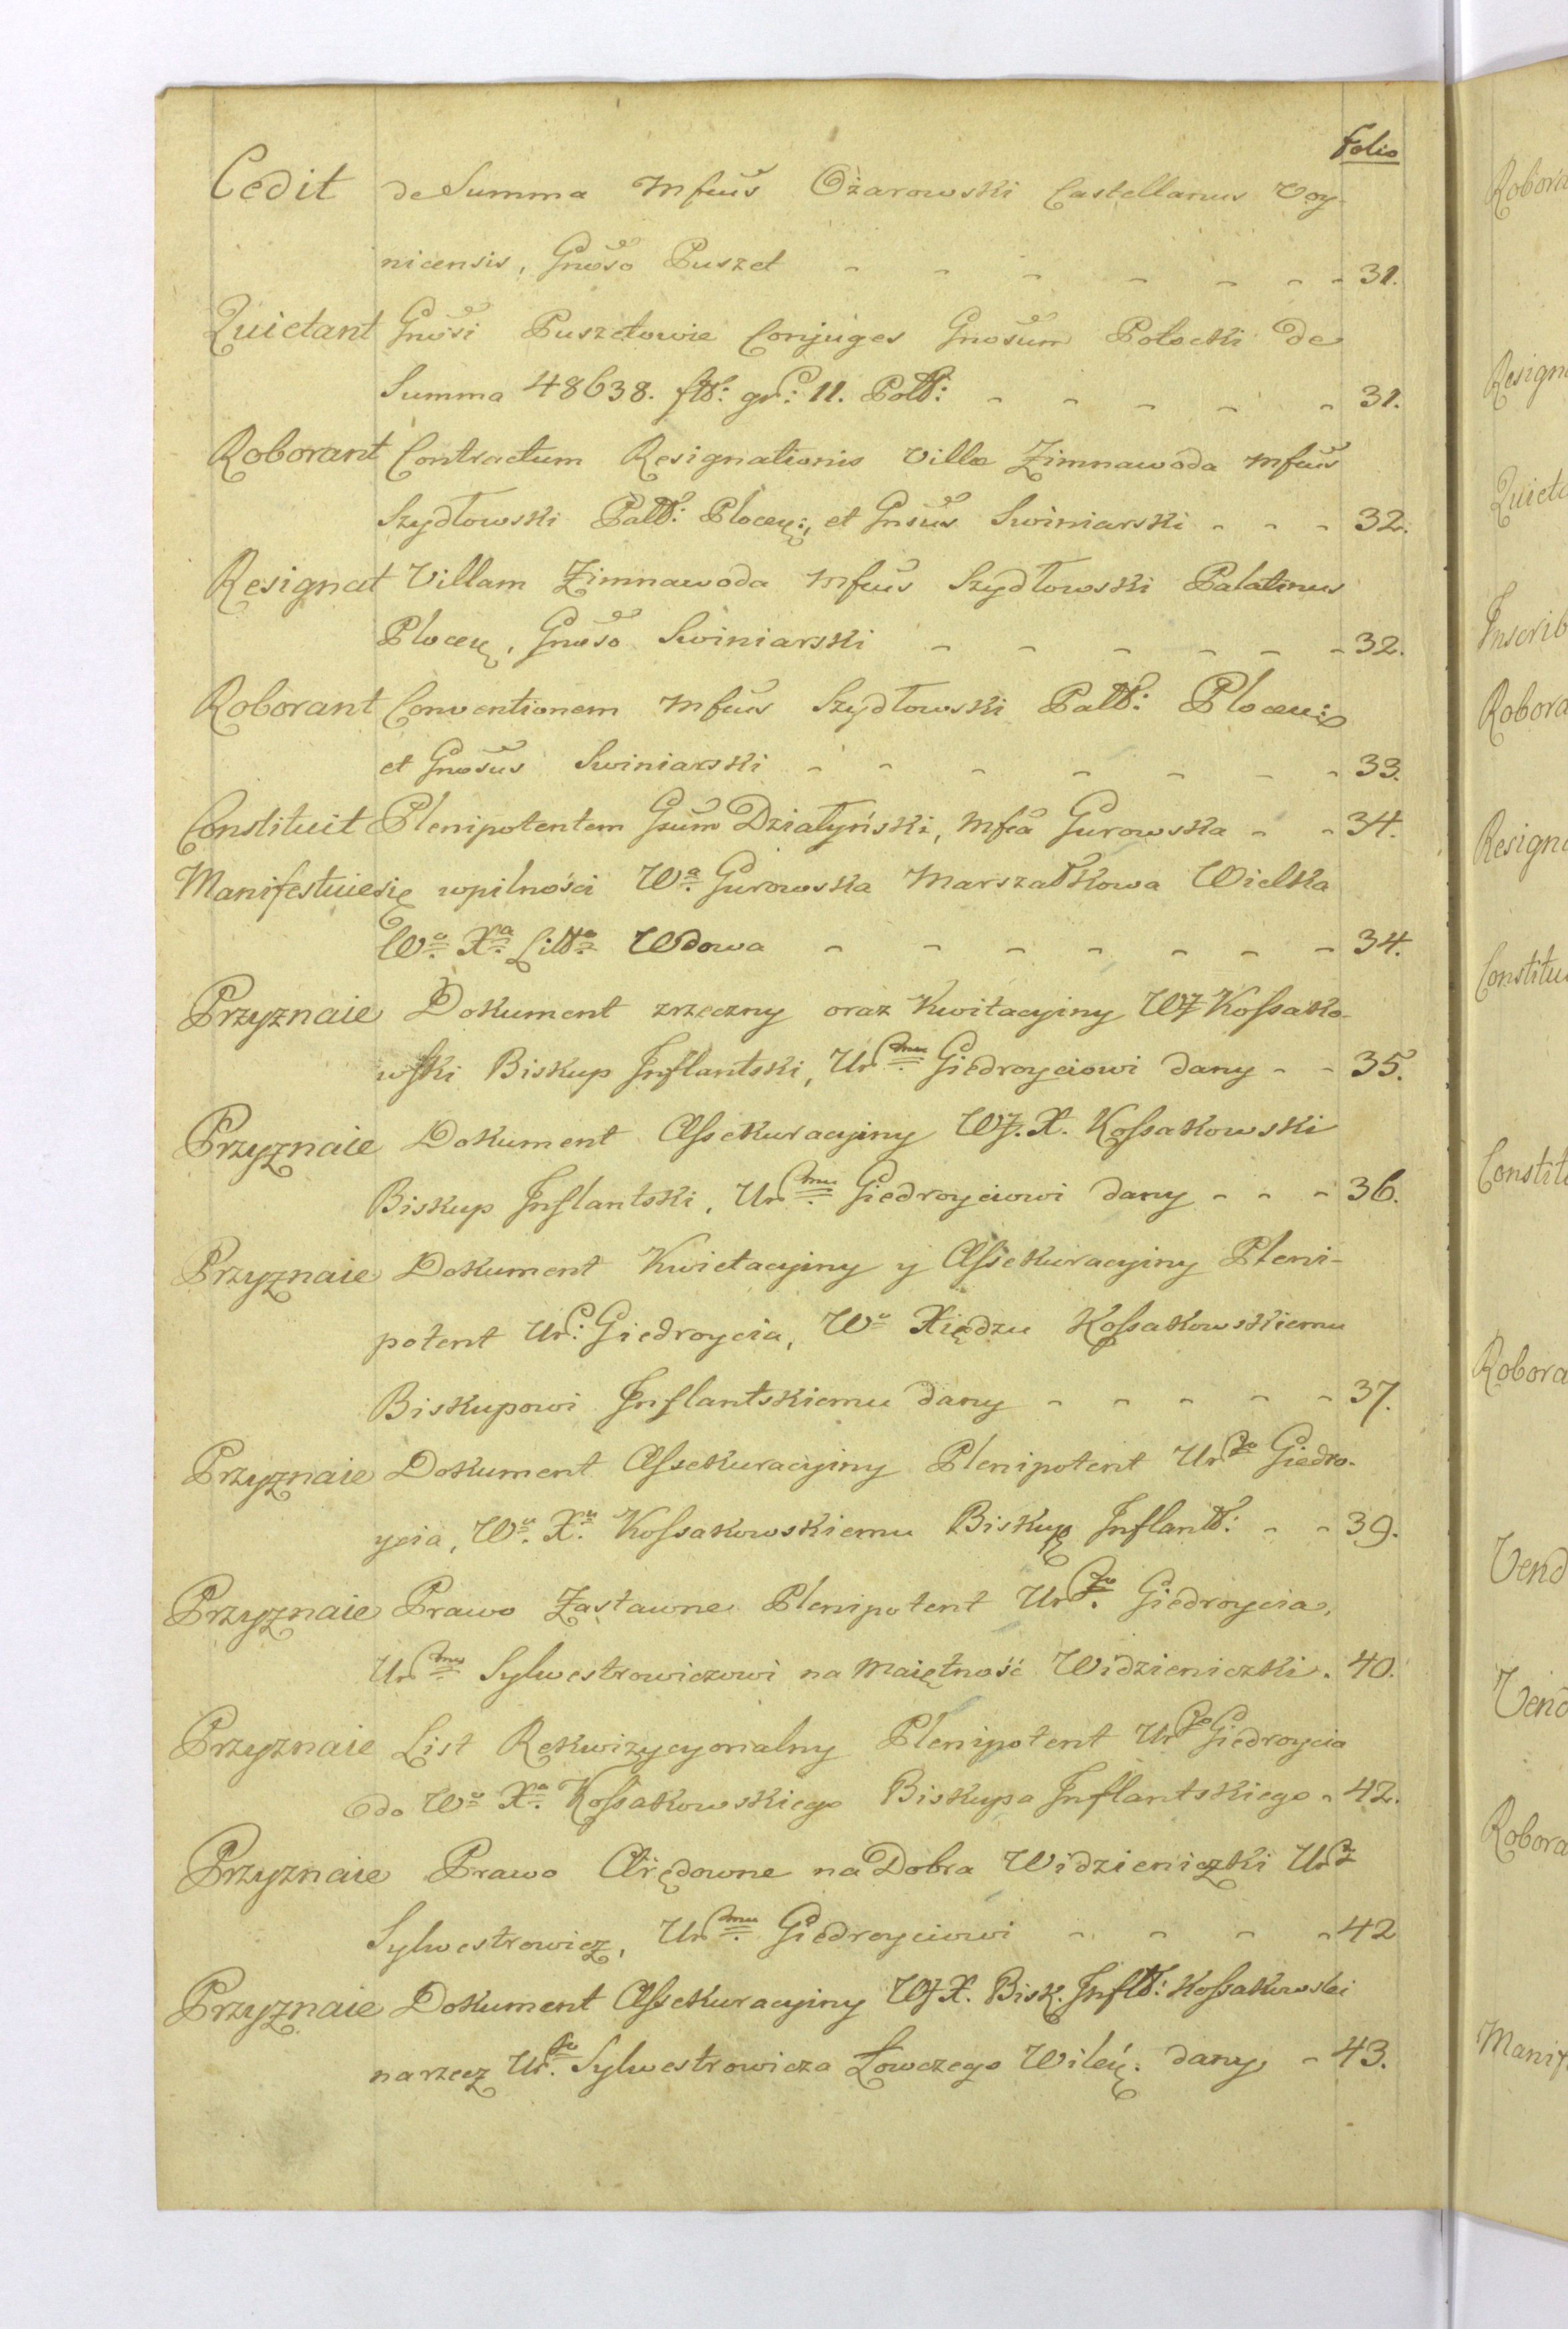 Folio
Cedit de Summa Mfcus Ożarowski Castellanus Voy-
nicensis, Gnoso Puszet - - - - - - - 31.
Quietant Gnosi Puszetowie Conjuges Gnosum Potocki de
Summa 48638. fltt: gr: 11. Poltt: - - - - - 31.
Roborant Contractum Resignationis Villæ Zimnawoda Mfcus
Szydłowski Paltt: Plocen:, et Gnsus Swiniarski - - - 32.
Resignat Villam Zimnawoda Mfcus Szydłowski Palatinus
Plocen, Gnoso Swiniarski - - - - - - 32.
Roborant Conventionem Mfcus Szydłowski Paltt: Plocen:
et Gnosus Swiniarski - - - - - - - 33.
Constituit Plenipotentem Gsum Działyński, Mfca Gurowska - - 34.
Manifestuie się wpilności Wa Gurowska Marszałkowa Wielka
Wo Xa Litto Wdowa - - - - - - - 34.
Przyznaie Dokument zrzeczny oraz Kwitacyiny WJ Kossako-
wski Biskup Inflantski, Urmu Giedroyciowi dany - - 35.
Przyznaie Dokument Assekuracyiny WJ. X. Kossakowski
Biskup Inflantski, Urmu Giedroyciowi dany - - - 36.
Przyznaie Dokument Kwietacyiny y Assekuracyiny Pleni-
potent Ur: Giedroycia, Wu Xiędzu Kossakowskiemu
Biskupowi Inflantskiemu dany - - - - - 37.
Przyznaie Dokument Assekuracyiny Plenipotent Urgo Giedro-
ycia, Wu. Xu. Kossakowskiemu Biskup Inflantt: - - 39.
Przyznaie Prawo Zastawne Plenipotent Urgo. Giedroycia,
Urmu Sylwestrowiczowi na Maiętność Widzieniczki. 40.
Przyznaie List Rekwizycyonalny Plenipotent Urgo Giedroycia
do Wo Xa. Kossakowskiego Biskupa Inflantskiego - 42.
Przyznaie Prawo Arędowne na Dobra Widzieniczki Ur
Sylwestrowicz, Urmu. Giedroyciowi - - - - 42
Przyznaie Dokument Assekuracyiny WJ X. Bisk. Infltt: Kossakowski
narzecz Urgo. Sylwestrowicza Łowczego Wileń: dany - 43.
Quieta
Inscrib
Robora
Constitu
Robora
Vend
Vend
Robora
Manif